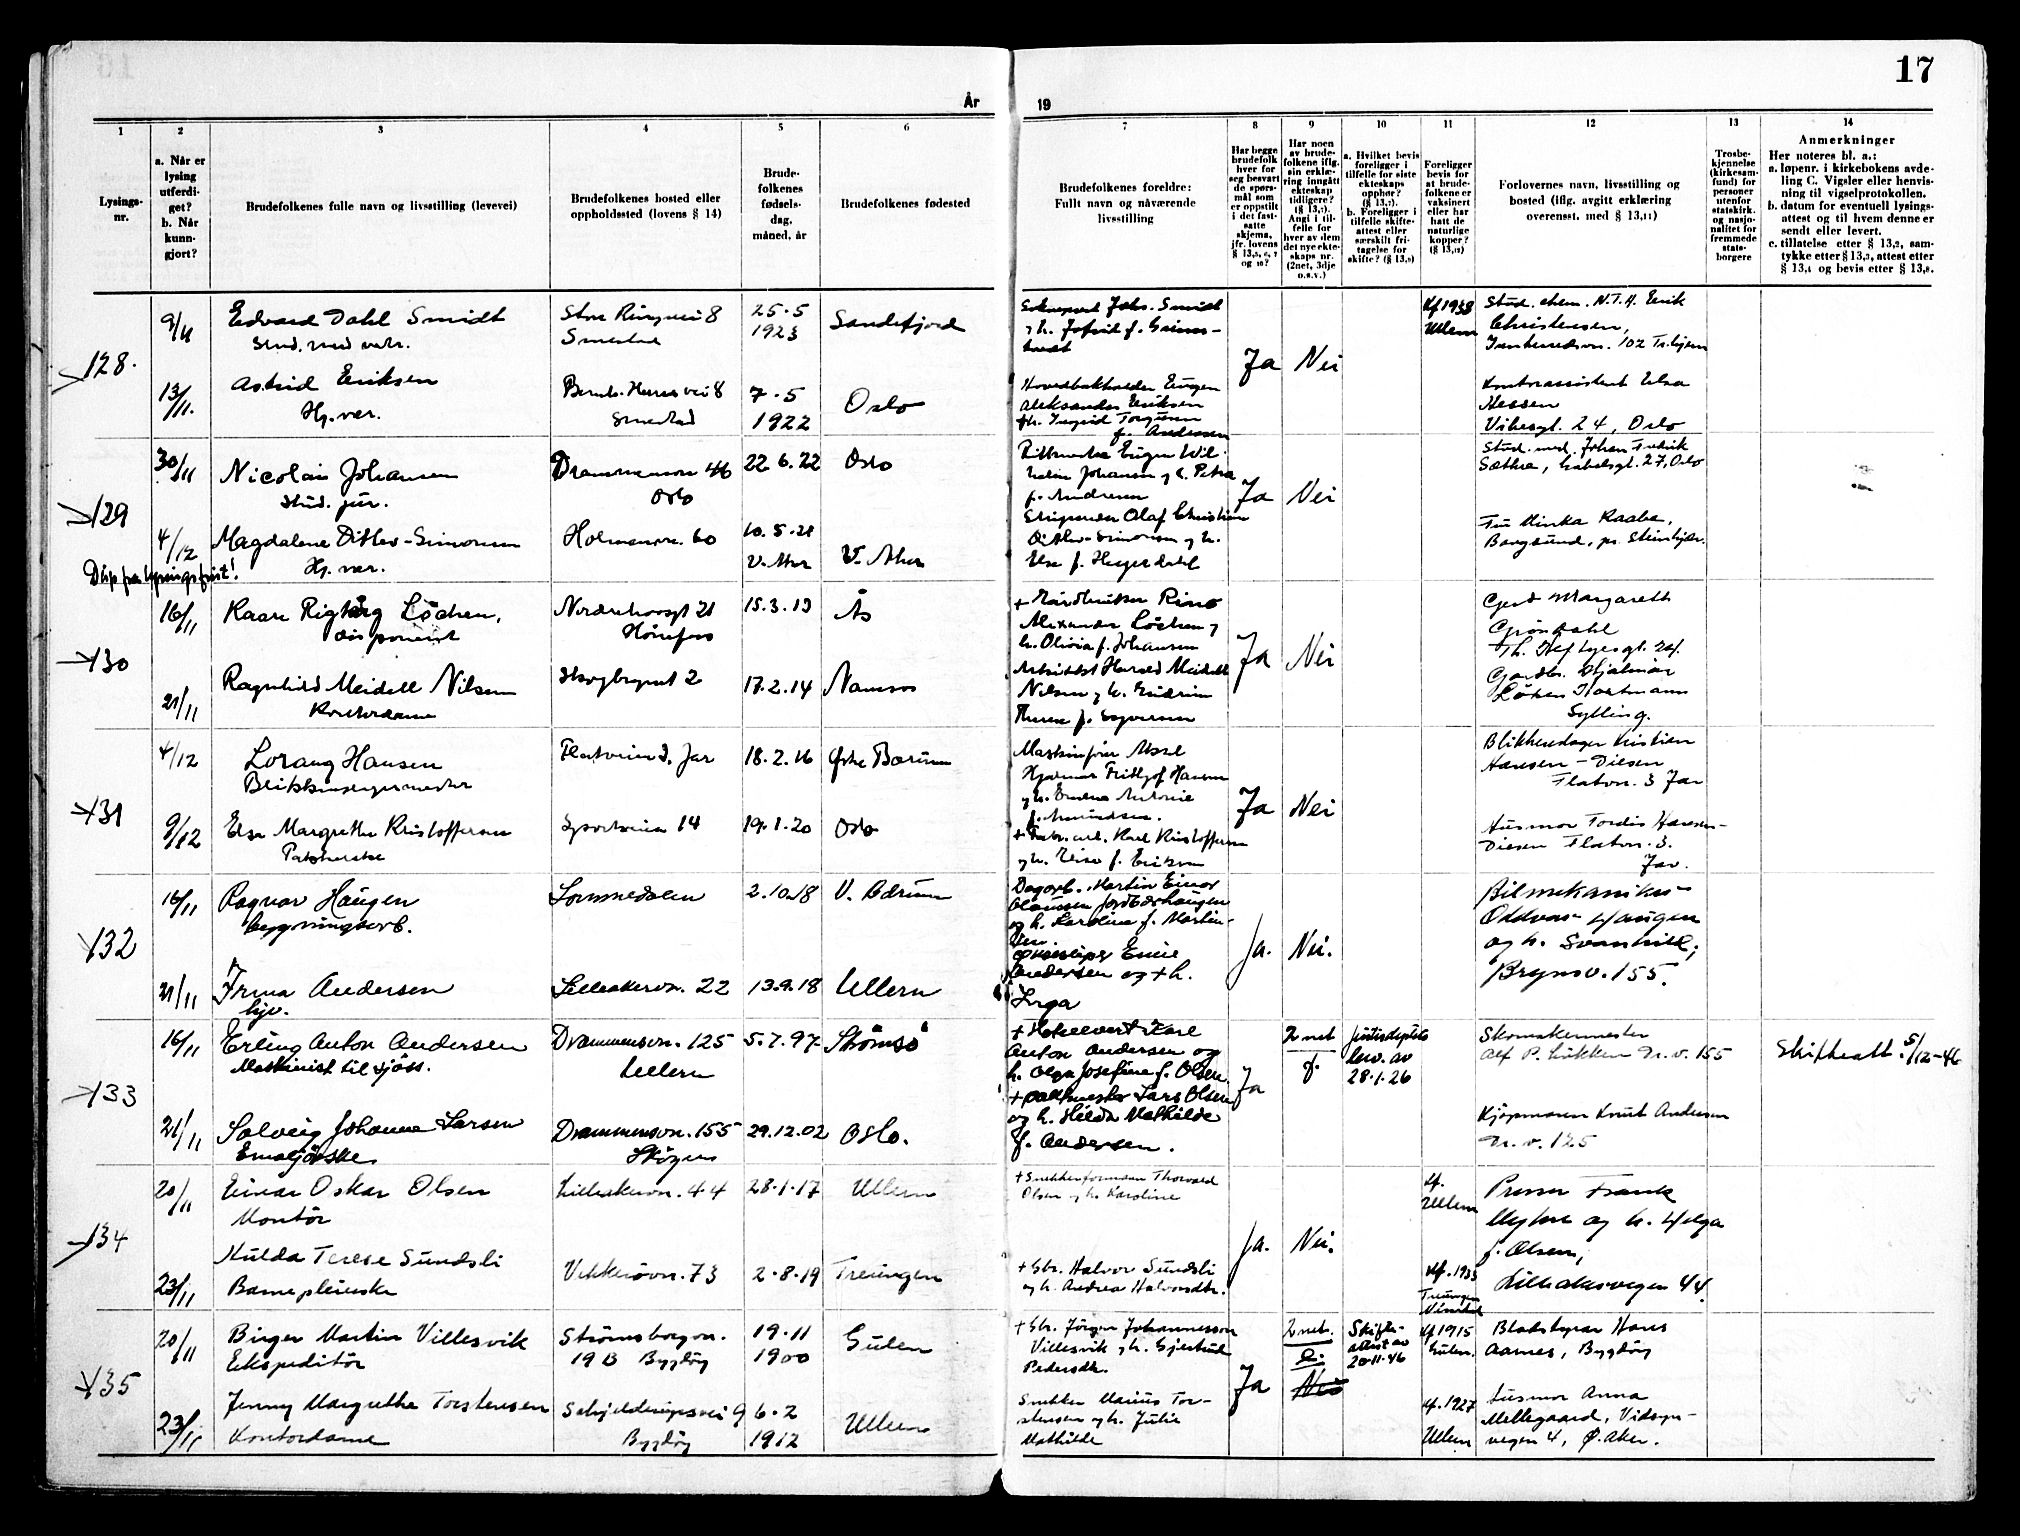 17
År
19
1
2
3
4
5
6
7
8
9
10
11
12
13
14
Lysings-
nr.
a. Når er
lysing
utferdi-
get?
b. Når
kunn-
gjort?
Brudefolkenes fulle navn og livsstilling (levevei)
Brudefolkenes bosted eller
oppholdssted (lovens § 14)
Brude-
folkenes
fødsels-
dag,
måned, år
Brudefolkenes fødested
Brudefolkenes foreldre:
Fullt navn og nåværende
livsstilling
Har begge
brudefolk
hver for
seg besvart
de spørs-
mål som
er oppstilt
i det fast-
satte
skjema,
jfr. lovens
§ 13,5, 6, 7
og 10?
Har noen
av brude-
folkene iflg.
sin erklæ-
ring inngått
ekteskap
tidligere?
(§ 13,7).
Angi i til-
felle for
hver av dem
det nye ekte-
skaps nr.
(2net, 3dje
o.s.v.)
a. Hvilket bevis
foreligger i
tilfelle for siste
ekteskaps
opphør?
(§ 13,7).
b. Foreligger i
tilfelle skifte-
attest eller
særskilt fri-
tagelse for
skifte? (§ 13,9)
Foreligger
bevis for
at brude-
folkene er
vaksinert
eller har
hatt de
naturlige
kopper?
(§ 13,12)
Forlovernes navn, livsstilling og
bosted (iflg. avgitt erklæring
overensst. med § 13,11)
Trosbe-
kjennelse
(kirkesam-
fund) for
personer
utenfor
statskirk.
og nasjo-
nalitet for
fremmede
stats-
borgere
Anmerkninger
Her noteres bl. a.:
a. løpenr. i kirkebokens avde-
ling C. Vigsler eller henvis-
ning til vigselprotokollen.
b. datum for eventuell lysings-
attest og til hvem denne er
sendt eller levert.
c. tillatelse etter § 13,2, sam-
tykke etter § 13,3, attest etter
§ 13,4 og bevis etter § 13,8.
128.
9/11
Edvard Dahl Smidt
stud. med. vetr.
Store Ringvei 8
Smestad
25.5
1923
Sandefjord
Ja
Nei
Kf 1938
Ullern
Stud. chem. N.T.H. Erik
Christensen,
13/11.
Astrid Eriksen
Hj. vær.
Smestad
7.5
1922
Oslo
Hovedbokholder Eugen
Aleksander Eriksen
f. Andersen
Kontorassistent Elsa
Hessen
Vibesgt. 24, Oslo
129
30/11
Nicolai Johansen
stud. jur.
Drammensvn 46
Oslo
22.6.22
Oslo
Ja
Nei
Stud. med. Johan Fredrik
Sæthre, Gabelsgt. 27, Oslo
4/12
Magdalene Ditlev-Simonsen
Hj. vær.
Holmenvn. 60
10.5.21
V. Aker
V. Aker
Skipsreder Olaf Christian
Ditlev-Simonsen og h.
Else f. Heyerdahl
Disp fra lysingsfrist!
130
16/11
Kaare Rigberg Löchen,
disponent
Hönefoss
15.3.13
Ås
Alexander Löchen og
h. Olivia f. Johansen
Ja
Nei
Gerd Margareth
Gröndahl
21/11
Ragnhild Meidell Nilsen
Kontordame
Skogbrynet 2
17.2.14
Namsos
Arkitekt Harald Meidell
Nilsen og h.
Therese f. Syversen
Sylling.
131
4/12
Lorang Hansen
Blikkenslagermester
Flatveien 3, Jar
18.2.16
Østre Bærum
Hjalmar Frithjof Hansen
f. Amundsen.
Ja
Nei
Blikkenslager Kristian
Hansen-Diesen
Flatvn. 3 Jar
9/12
Else Margrethe Kristoffersen
Sportveien 14
19.1.20
Oslo
+ Fabr. arb. Karl Kristoffersen
og h. Elise f. Eriksen
Husmor Tordis Hansen-
Diesen Flatvn. 3.
Jar.
132
16/11
Ragnar Haugen
bygningsarb.
2.10.18
V. Bærum
Dagarb. Martin Einar
Olaussen Jordbærhaugen
og h. Karoline f. Martin-
sen.
Ja.
Nei.
Bilmekaniker
Oddvar Haugen
og h. Svanhild,
Brynsv. 155.
21/11
Irma Andersen
hjv.
Lilleakervn. 22
13.9.18
Ullern
Andersen og + h.
Inga
133
16/11
Erling Anton Andersen
Maskinist til sjöss.
Drammensvn. 125
Ullern
5.7.97
Strömsö
+ Hotellvert Karl
Anton Andersen og
h. Olga Josefine f. Olsen.
Ja
2 net
f.
28.1.26
Skomakermester
Alf P. Lökken Dr. v. 155
Skifteatt. 5/12-46
21/11
Solveig Johanne Larsen
Emaljörske
Drammensvn. 155
Sköyen
29.12.02
Oslo.
Lars Olsen
og h. Hilda Mathilde
f. Andersen.
Kjöpmann Knut Andersen
Dr. v. 125
134
20/11
Einar Oskar Olsen
Montör
Lilleakervn. 44
28.1.17
Ullern
+ Snekkerformann Thorvald
Olsen og h. Karoline
Ja.
Nei.
Kf.
Ullern
Presser Frank
Myhre og h. Helga
f. Olsen,
Lilleakervegen 44.
23/11
Hulda Terese Sundsli
Barnepleierske
Vekkerövn. 73
2.8.19
Treungen
+ Gbr. Halvor Sundsli
og h. Andrea Halvorsdtr.
Kf. 1933
Treungen
135
20/11
Birger Martin Villesvik
Ekspeditör
Strömsborgvn.
19 B Bygdöy
19.11
1900
Gulen
+ Gbr. Jörgen Johannesson
Villesvik og h. Gjertrud
Pedersdtr.
Ja
2 net.
Nei
Skifte-
attest av
20.11.46
Kf 1915
Gulen.
Bladstyrar Hans
Aarnes, Bygdöy
23/11
Jenny Margrethe Torstensen
Kontordame
Bygdöy
6.2
1912
Ullern
Snekker Marius Tor-
stensen og h. Julie
Mathilde
Kf. 1927
Ullern
Husmor Anna
Mellegaard, Vidsyn-
vegen 4, Ø. Aker.